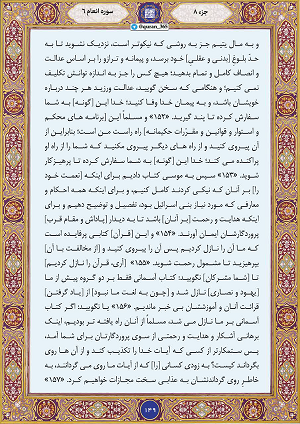 جزء ۸
@quran_365
سوره انعام ۶
و به مال یتیم جز به روشی که نیکوتر است، نزدیک نشوید تا به
حدّ بلوغ [بدنی و عقلی] خود برسد، و پیمانه و ترازو را بر اساس عدالت
و انصاف کامل و تمام بدهید؛ هیچ کس را جز به اندازه توانش تکلیف
نمی کنیم؛ و هنگامی که سخن گویید، عدالت ورزید هر چند درباره
خویشان باشد، و به پیمان خدا وفا کنید؛ خدا این [گونه] به شما
سفارش کرده تا پند گیرید. «۱۵۲» و مسلماً این [برنامه های محکم
و استوار و قوانین و مقرّرات حکیمانه] راه راست من است؛ بنابراین از
آن پیروی کنید و از راه های دیگر پیروی مکنید که شما را از راه او
پراکنده می کند؛ خدا این [گونه] به شما سفارش کرده تا پرهیزکار
شوید. «۱۵۳» سپس به موسی کتاب دادیم برای اینکه [نعمت خود
را] بر آنان که نیکی کردند کامل کنیم، و برای اینکه همه احکام و
معارفی که مورد نیاز بنی اسرائیل بود، تفصیل و توضیح دهیم و برای
اینکه هدایت و رحمت [بر آنان] باشد تا به دیدار [پاداش و مقام قرب]
پروردگارشان ایمان آورند. «۱۵۴» و این [قرآن] کتابی پرفایده است
که ما آن را نازل کردیم پس آن را پیروی کنید و [از مخالفت با آن]
بپرهیزید تا مشمول رحمت شوید. «۱۵۵» [آری، قرآن را نازل کردیم]
تا [شما مشرکان] نگویید: کتاب آسمانی فقط بر دو گروه پیش از ما
[یهود و نصاری] نازل شد و [چون به لغت ما نبود] از [یاد گرفتن]
قرائت آنان و آموزشتان بی خبر ماندیم. «۱۵۶» یا نگویید: اگر کتاب
آسمانی بر ما نازل می شد، مسلماً از آنان راه یافته تر بودیم، اینک
برهانی آشکار و هدایت و رحمتی از سوی پروردگارتان برای شما آمد،
پس ستمکارتر از کسی که آیات خدا را تکذیب کند و از آن ها روی
بگرداند کیست؟ به زودی کسانی [را] که از آیات ما روی می گردانند، به
خاطر روی گرداندنشان به عذابی سخت مجازات خواهیم کرد. «۱۵۷»
۱۴۹